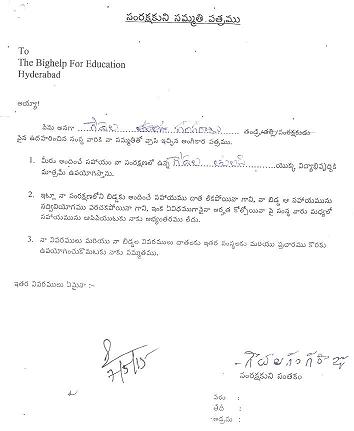 సంరక్షకుని సమ్మతి పత్రము
To
The Bighelp for Education
Hyderabad
అయ్యా!
నేను అనగా తండ్రి/తల్లి/సంరక్షకుడు
పైన ఉదహరించిన సంస్థ వారికి నా సమ్మతితో వ్రాసి ఇచ్చిన అంగీకార పత్రము.
1. మీరు అందించే సహాయం నా సంరక్షణలో ఉన్న యొక్క విద్యాభివృద్ధికి
మాత్రమే ఉపయోగిస్తాను.
2. ఇట్లా నా సంరక్షణలోని బిడ్డకు అందించే సహాయము దాత లేకపోయినా గాని, నా బిడ్డ ఆ సహాయమును
సద్వినియోగము పరచకపోయినా గాని, ఇంక ఏవిధముగానైనా అర్హత కోల్పోయినా పై సంస్థ వారు మధ్యలో
సహాయమును ఆపివేయుటకు నాకు అభ్యంతరము లేదు.
3. నా వివరములు మరియు నా బిడ్డల వివరములు దాతలకు ఇతర సంస్థలకు మరియు ప్రచారము కొరకు
ఉపయోగించుకొనుటకు నాకు సమ్మతము.
ఇతర వివరములు ఏమైనా :-
7/5/15
సంరక్షకుని సంతకం
పేరు :
తేదీ :
అడ్రసు :